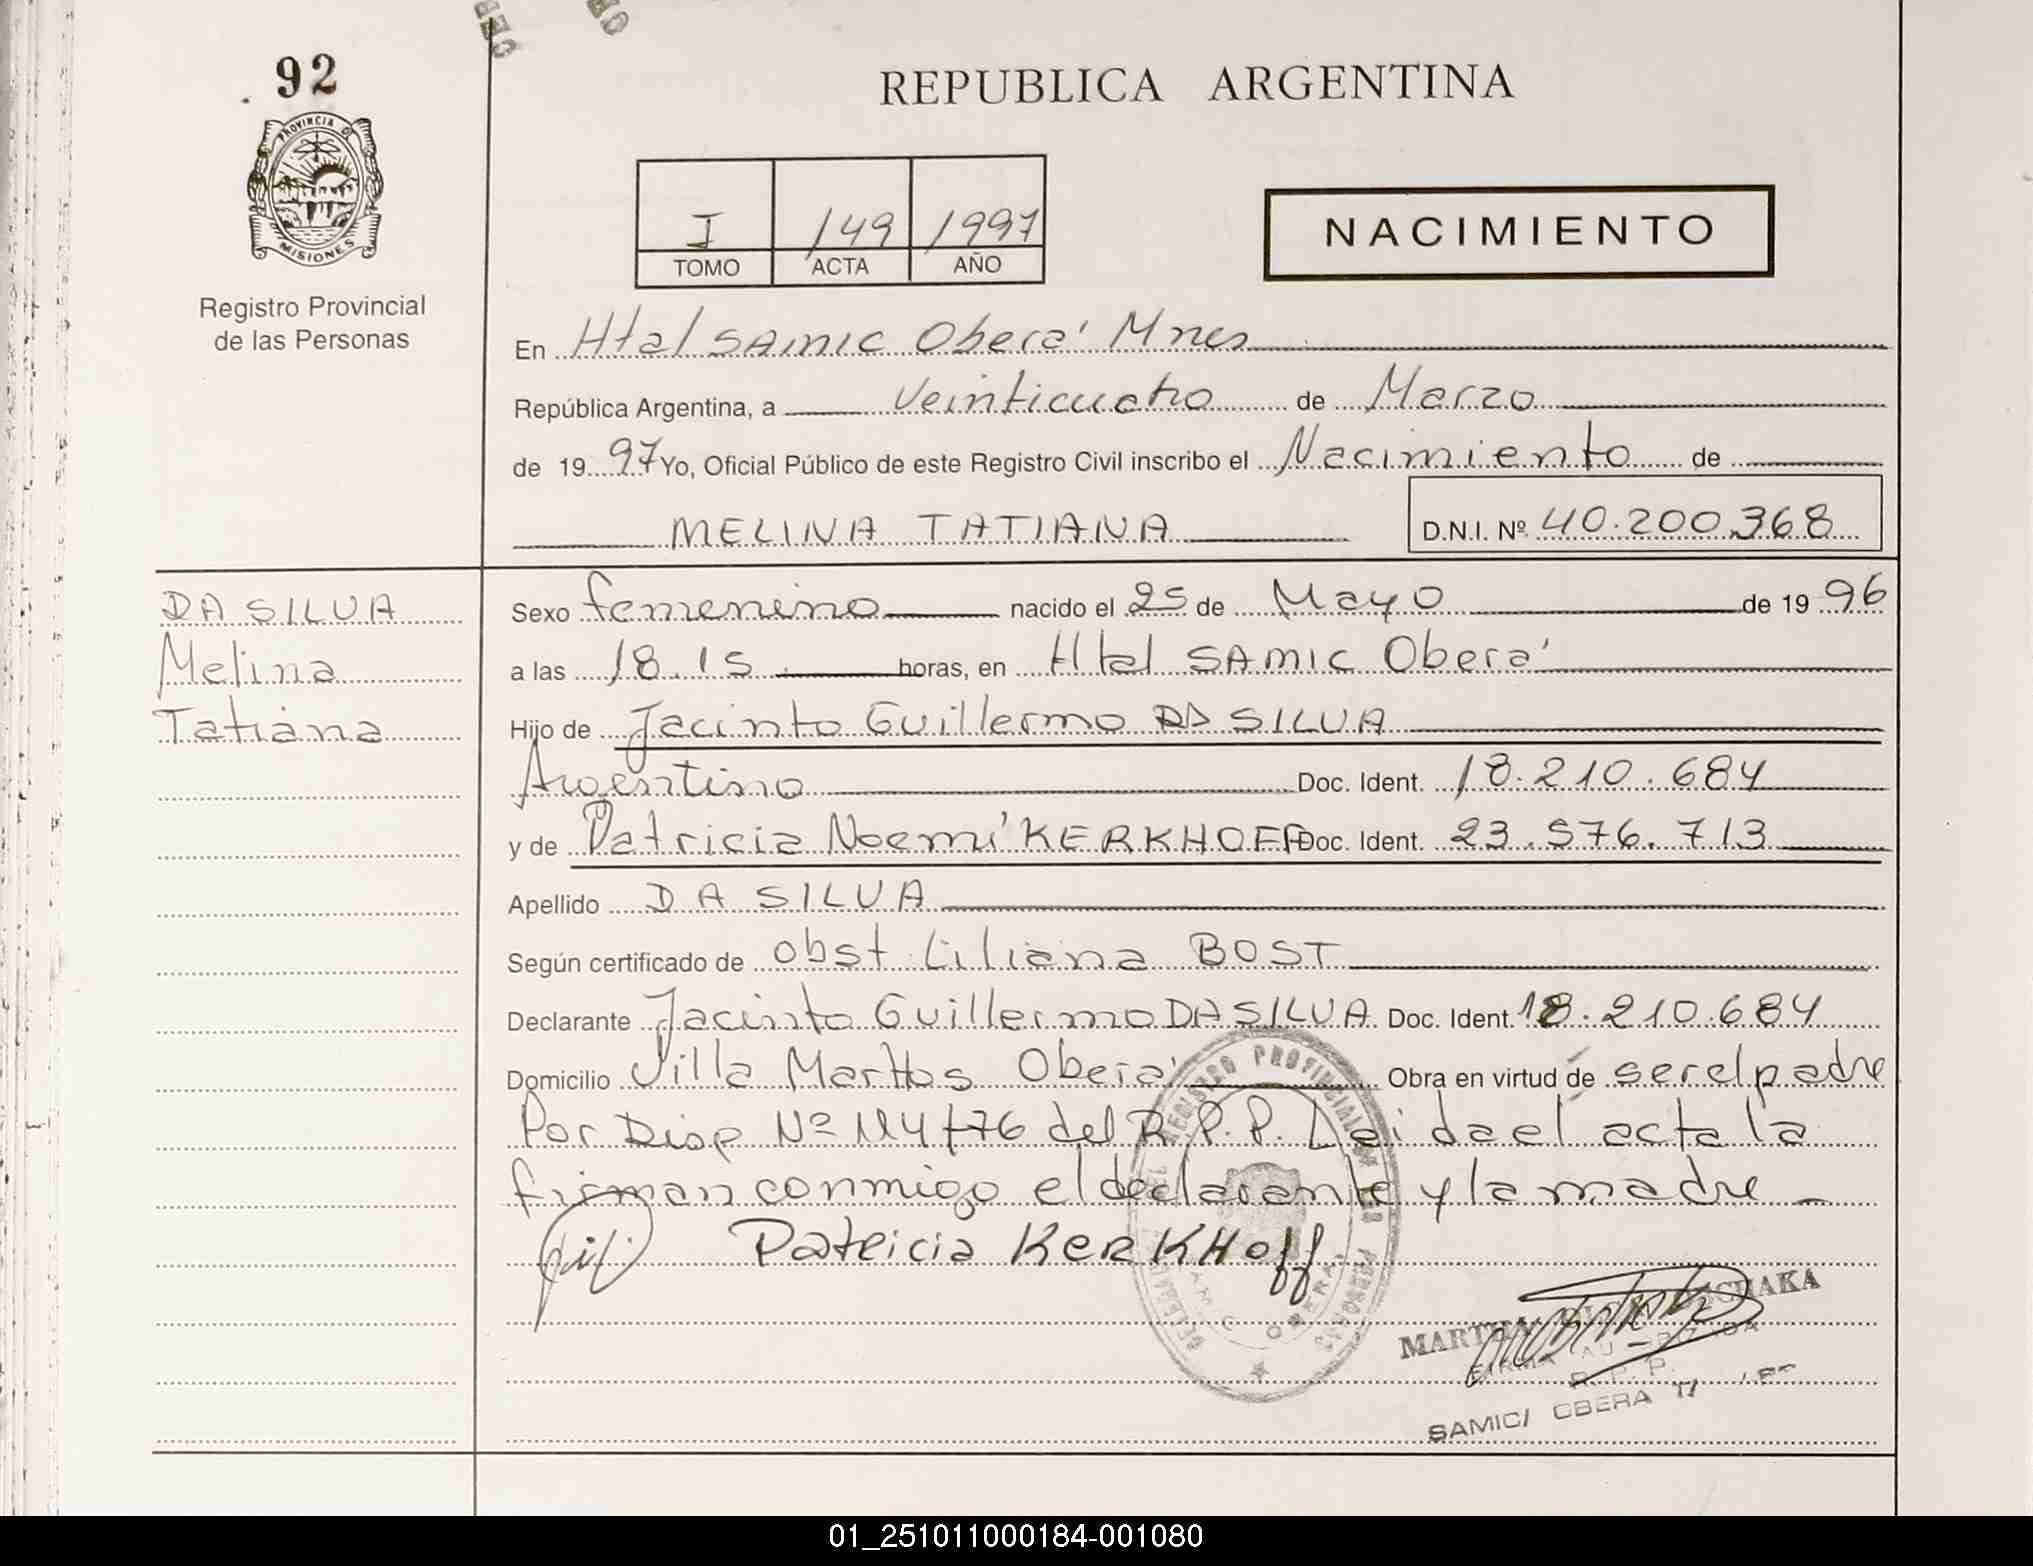 92
REPUBLICA ARGENTINA
PROVINCIA D
MISIONES
Registro Provincial
de las Personas
I 149 1997
TOMO ACTA AÑO
NACIMIENTO
En Htal SAMIC Oberá Mnes
República Argentina, a veinticuatro de Marzo
de 19 97 Yo, Oficial Público de este Registro Civil inscribo el Nacimiento de
MELINA TATIANA D.N.I. Nº 40.200.368
DA SILVA
Melina
Tatiana
Sexo femenino nacido el 25 de Mayo de 19 96
a las 18.15 horas, en Htal SAMIC Oberá
Hijo de Jacinto Guillermo DA SILVA
Argentino Doc. Ident. 18.210.684
y de Patricia Noemí KERKHOFF Doc. Ident. 23.576.713
Apellido DA SILVA
Según certificado de obst Liliana BOST
Declarante Jacinto Guillermo DA SILVA Doc. Ident. 18.210.684
Domicilio Villa Martos Oberá Obra en virtud de ser el padre
Por Disp Nº 114/76 del R.P.P. Leida el acta la
firman conmigo el declarante y la madre
Patricia KERKHOff
REGISTRO PROVINCIAL DE LAS PERSONAS
OBERA
MARTHA
FIRMA AU
R.P.P.
SAMIC/ OBERA
01_251011000184-001080